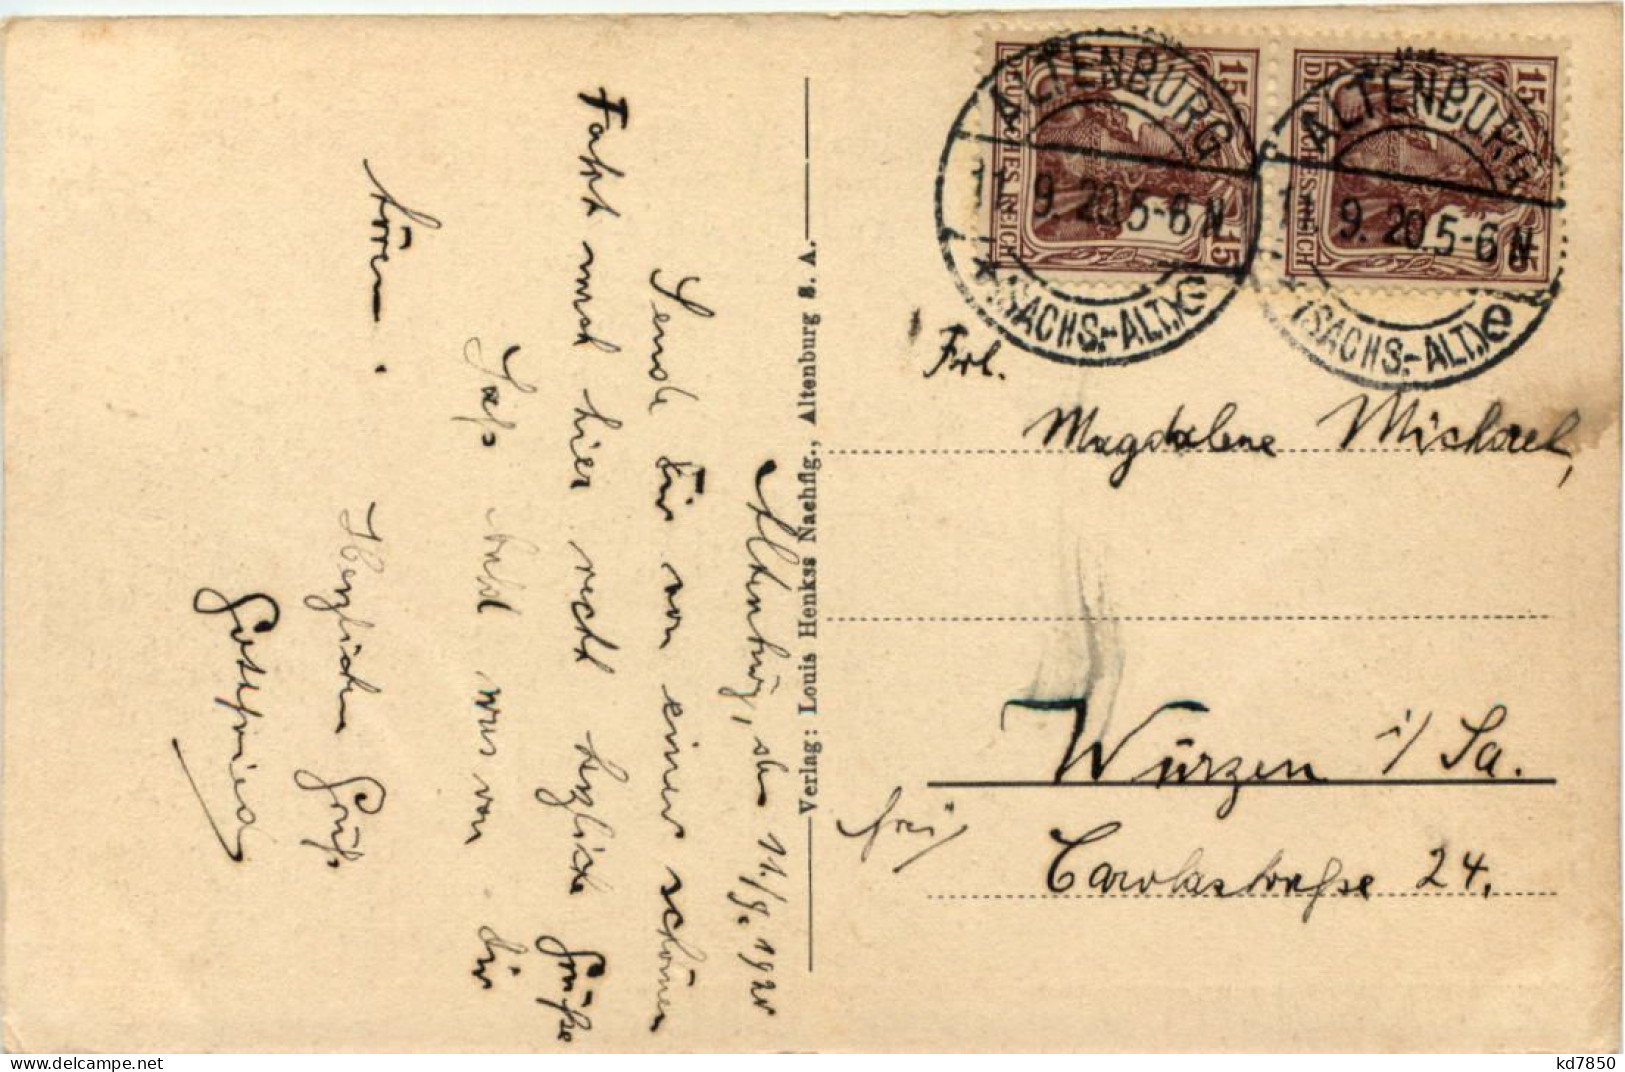 Altenburg, den 11./9. 1920
Sende Dir von einer schönen
Fahrt nach hier recht herzliche Grüße
Laß bald was von dir
hören.
Herzlichen Gruß
Gottfried
Verlag: Louis Henkss Nachflg., Altenburg S. A.
ALTENBURG
9. 20. 5-6 N.
* (SACHS.-ALT.) e
ALTENBURG
9. 20. 5-6 N.
* (SACHS.-ALT.) e
DEUTSCHES REICH
15 15
DEUTSCHES REICH
15 15
Frl.
Magdalene Michael,
Wurzen i/Sa.
frei
Carolastraße 24.
kd7850